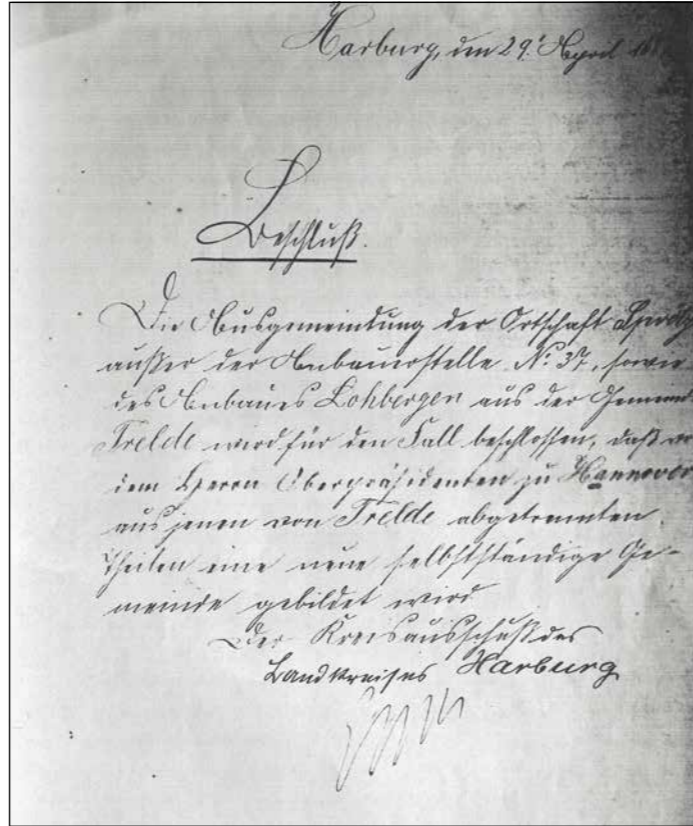 Harburg, den 29. April
Beschluß.
Die Ausgemeindung der Ortschaft
außer der Anbauerstelle No. 37, sowie
des Anbaues Lohbergen aus der Gemeinde
Trelde wird für den Fall beschlossen, daß
dem Herrn Oberpräsidenten zu Hannover
aus jenen von Trelde abgetrennten
Theilen eine neue selbstständige Ge-
meinde gebildet wird
Der Kreisausschuß des
Landkreises Harburg